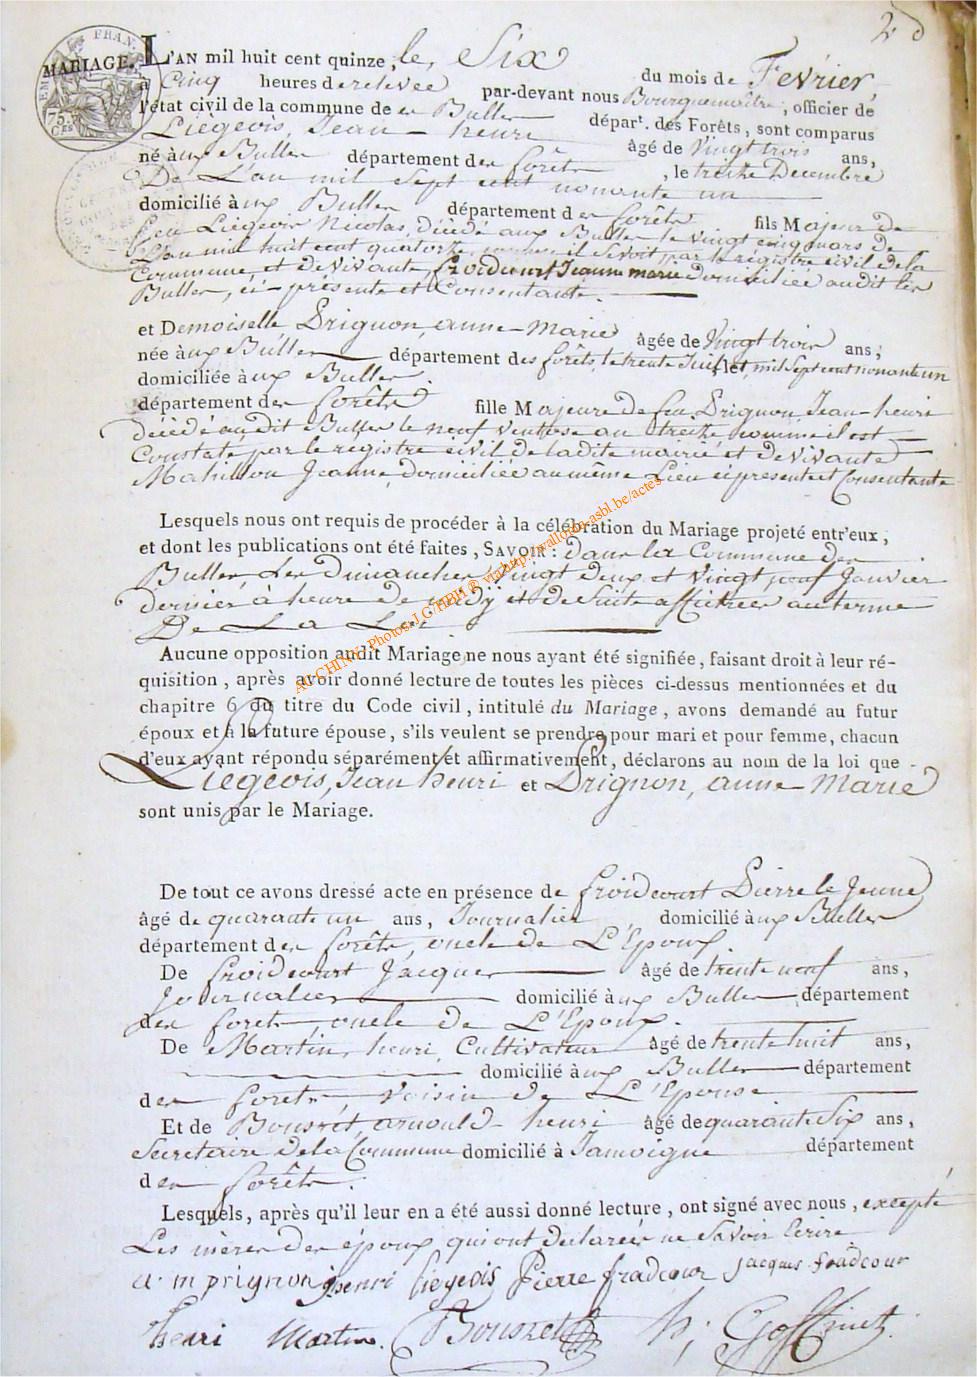 2
MARIAGE. L'AN mil huit cent quinze, le Six du mois de Fevrier,
à Cinq heures de relevée par-devant nous Bourguemaitre, officier de
l'état civil de la commune de Buller dépar.t des Forêts, sont comparus
Liégeois, Jean-henri âgé de Vingt trois ans,
né aux Buller département des forêts, le treize Decembre
De L'an mil Sept cent nonante un
domicilié aux Buller département des forêts fils Majeur de
feu Liégeois Nicolas, décédé aux Buller le vingt cinq mars de
l'an mil huit cent quatorze, comme il se voit par le registre civil de la
Commune, et de Vivante, froidcourt Jeanne marie domiciliée audit les
Buller, ci-présente et Consentante.
et Demoiselle Prignon, anne-Marie âgée de Vingt trois ans,
née aux Buller département des forêts, le trente Juillet, mil Sept cent nonante un
domiciliée aux Buller.
département des forêts fille Majeure de feu Prignon Jean-henri
décédé audit Buller le neuf Ventôse an treize, comme il est
Constaté par le registre civil de la dite mairie et de Vivante
Mahillou Jeanne, domiciliée au même Lieu ci présente et Consentante
Lesquels nous ont requis de procéder à la célébration du Mariage projeté entr'eux,
et dont les publications ont été faites, SAVOIR: dans la Commune des
Buller, Les Dimanches Vingt deux et Vingt neuf Janvier
dernier à heure de midy et de Suite affichées au terme
De La Loi
Aucune opposition audit Mariage ne nous ayant été signifiée, faisant droit à leur ré-
quisition, après avoir donné lecture de toutes les pièces ci-dessus mentionnées et du
chapitre 6 du titre du Code civil, intitulé du Mariage, avons demandé au futur
époux et à la future épouse, s'ils veulent se prendre pour mari et pour femme, chacun
d'eux ayant répondu séparément et affirmativement, déclarons au nom de la loi que
Liégeois, Jean henri et Prignon, anne-Marie
sont unis par le Mariage.
De tout ce avons dressé acte en présence de froidcourt Pierre le Jeune
âgé de quarante un ans, Journalier domicilié aux Buller
département des forêts, oncle de L'Epoux.
De froidcourt Jacques âgé de trente neuf ans,
Journalier domicilié aux Buller département
des forets, oncle de L'Epoux.
De Martin, henri, Cultivateur âgé de trente huit ans,
domicilié aux Buller département
des forets, voisin de L'Epouse
Et de Bousret, arnould-henri âgé de quarante Six ans,
Secretaire de la Commune domicilié à Jamoigne département
des forêts.
Lesquels, après qu'il leur en a été aussi donné lecture, ont signé avec nous, excepté
Les mères des époux qui ont déclarées ne Savoir Ecrire
a. m prignon j henri liegeois Pierre fradcour jacques fradcour
henri Martin. Bousret h; Goffinet.
AC CHINY - Photos: J.G/HBH ® via http://wallonia-asbl.be/actes